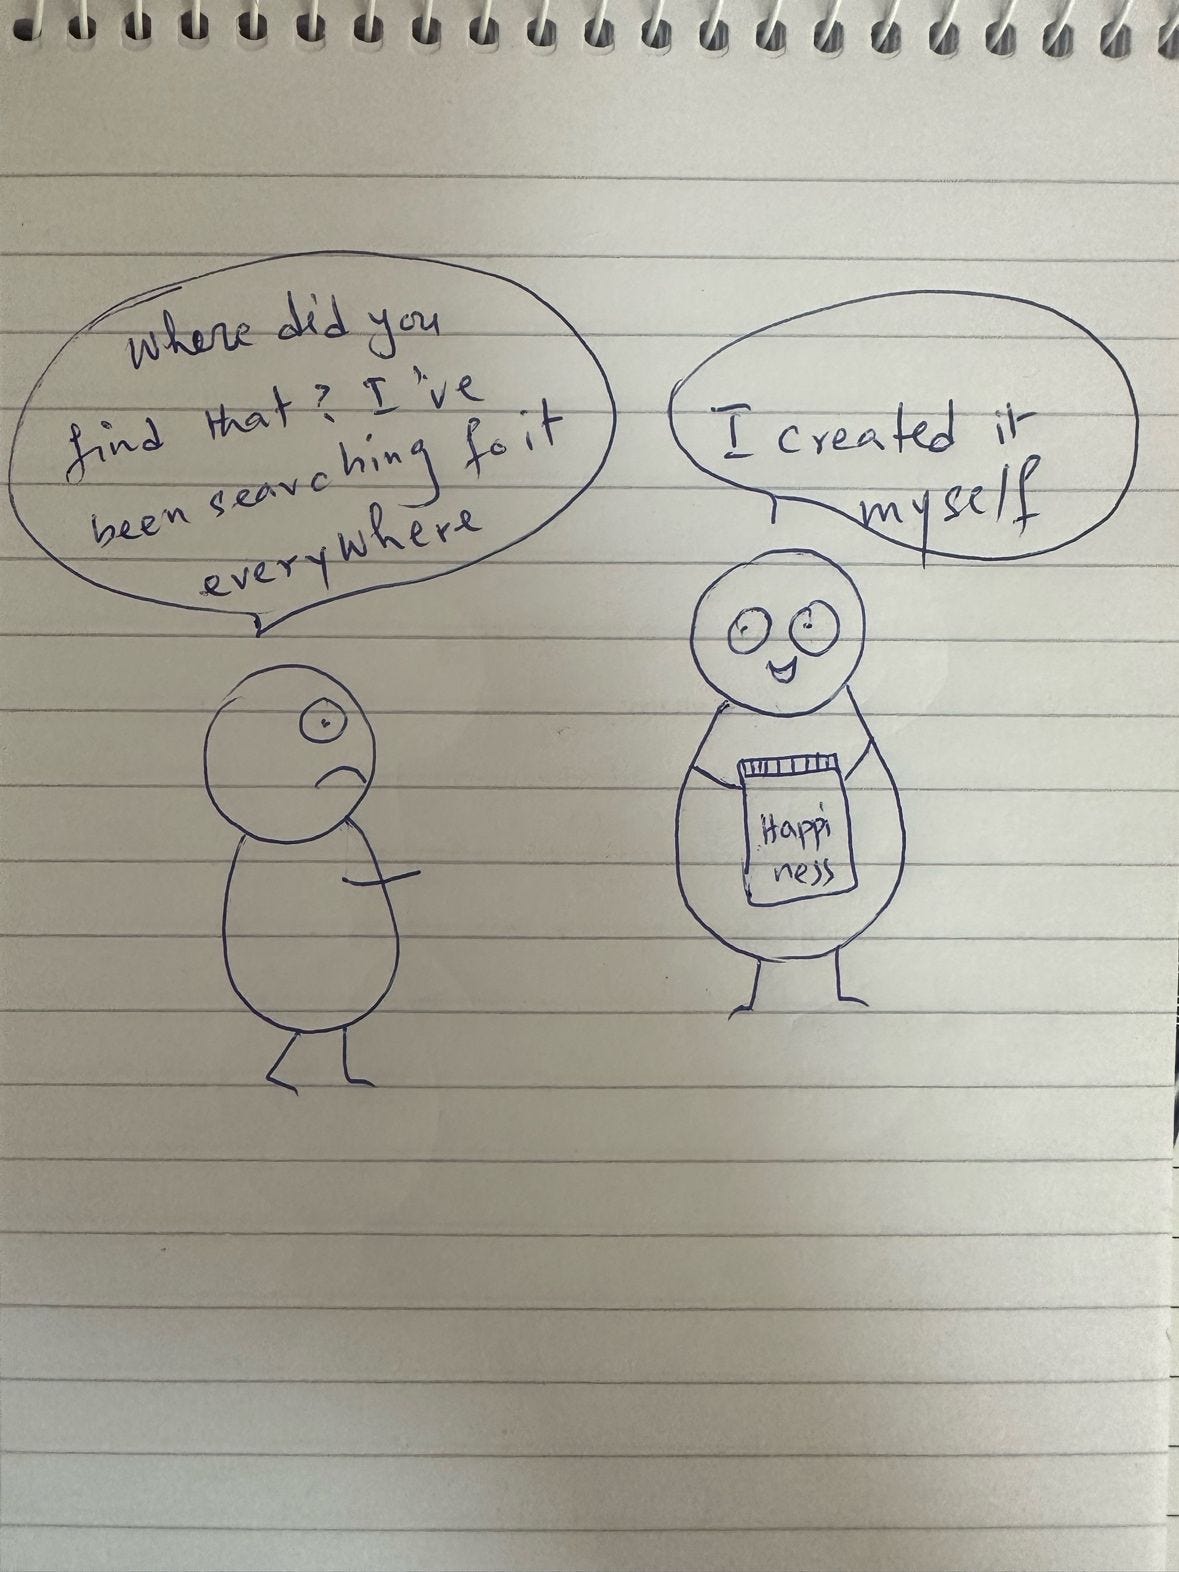 Where did you
find that? I've
been searching fo it
everywhere
I created it
myself
Happi
ness